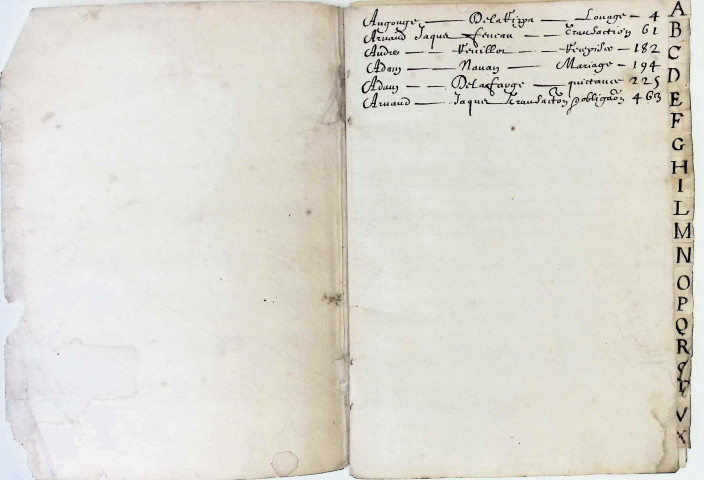 Angouge — DelaRippa — Louage — 4
Arnaud Jaque — feneau — Transaction 61
Andre — Veuillor — Recepisse — 182
Adam — Navan — Mariage — 194
Adam — Delafarge — quittance 225
Arnaud — Jaque Transaction obligaon 463
A
B
C
D
E
F
G
H
I
L
M
N
O
P
Q
R
S
T
V
X